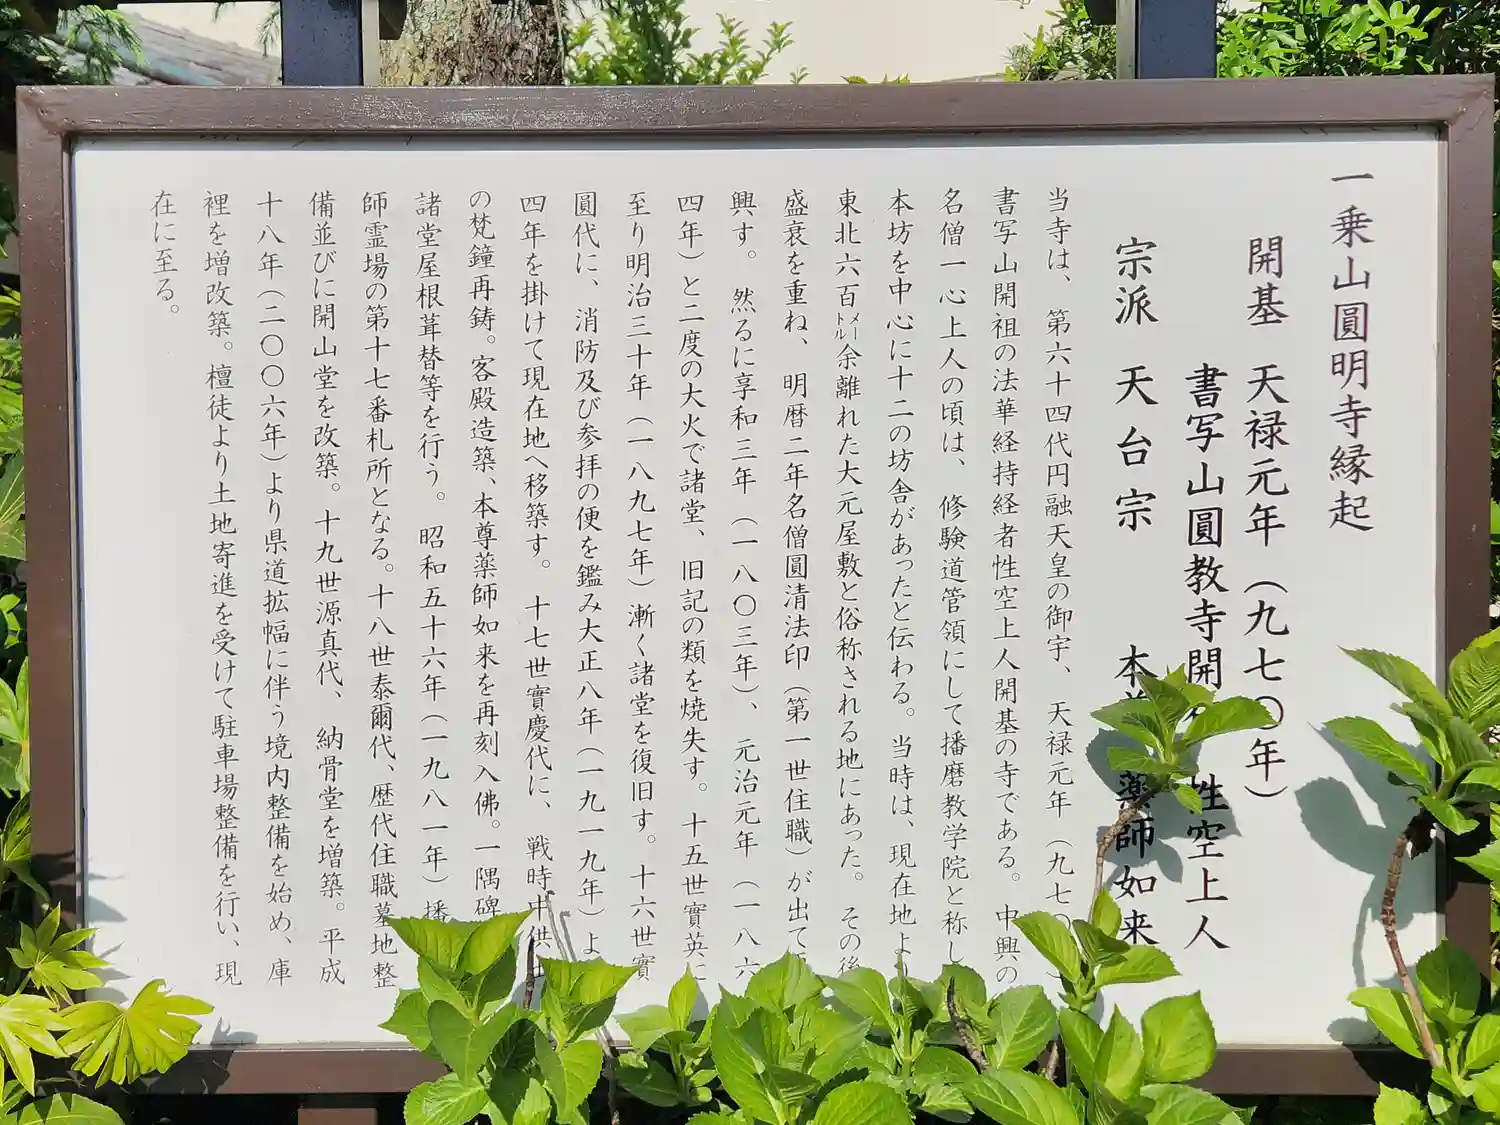 一乗山圓明寺縁起
開基　天禄元年（九七〇年）
書写山圓教寺開　性空上人
宗派　天台宗　本　薬師如来
当寺は、第六十四代円融天皇の御宇、天禄元年（九七〇
書写山開祖の法華経持経者性空上人開基の寺である。中興の
名僧一心上人の頃は、修験道管領にして播磨教学院と称し
本坊を中心に十二の坊舎があったと伝わる。当時は、現在地より
東北六百㍍余離れた大元屋敷と俗称される地にあった。その後
盛衰を重ね、明暦二年名僧圓清法印（第一世住職）が出て
興す。然るに享和三年（一八〇三年）、元治元年（一八六
四年）と二度の大火で諸堂、旧記の類を焼失す。十五世實英に
至り明治三十年（一八九七年）漸く諸堂を復旧す。十六世實
圓代に、消防及び参拝の便を鑑み大正八年（一九一九年）よ
四年を掛けて現在地へ移築す。十七世實慶代に、戦時中供出
の梵鐘再鋳。客殿造築、本尊薬師如来を再刻入佛。一隅碑
諸堂屋根葺替等を行う。昭和五十六年（一九八一年）播
師霊場の第十七番札所となる。十八世泰爾代、歴代住職墓地整
備並びに開山堂を改築。十九世源真代、納骨堂を増築。平成
十八年（二〇〇六年）より県道拡幅に伴う境内整備を始め、庫
裡を増改築。檀徒より土地寄進を受けて駐車場整備を行い、現
在に至る。